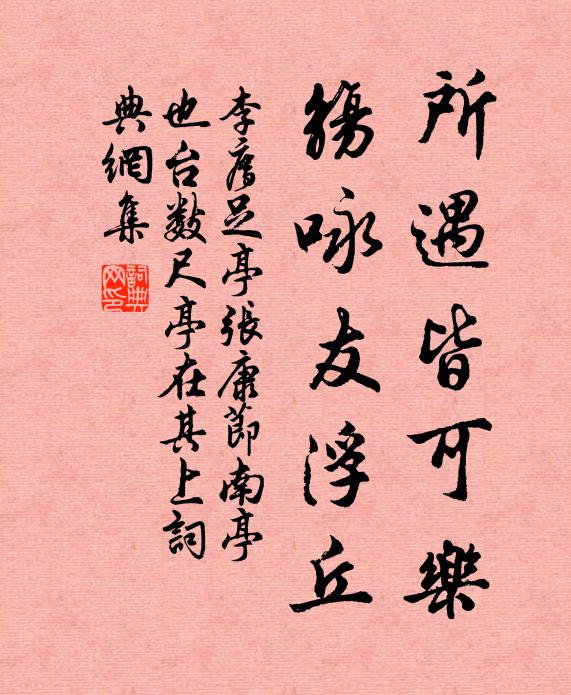 所遇皆可樂
觴咏友浮丘
李膺足亭張康節南亭
也台数尺亭在其上詞
典網集
詞典网印